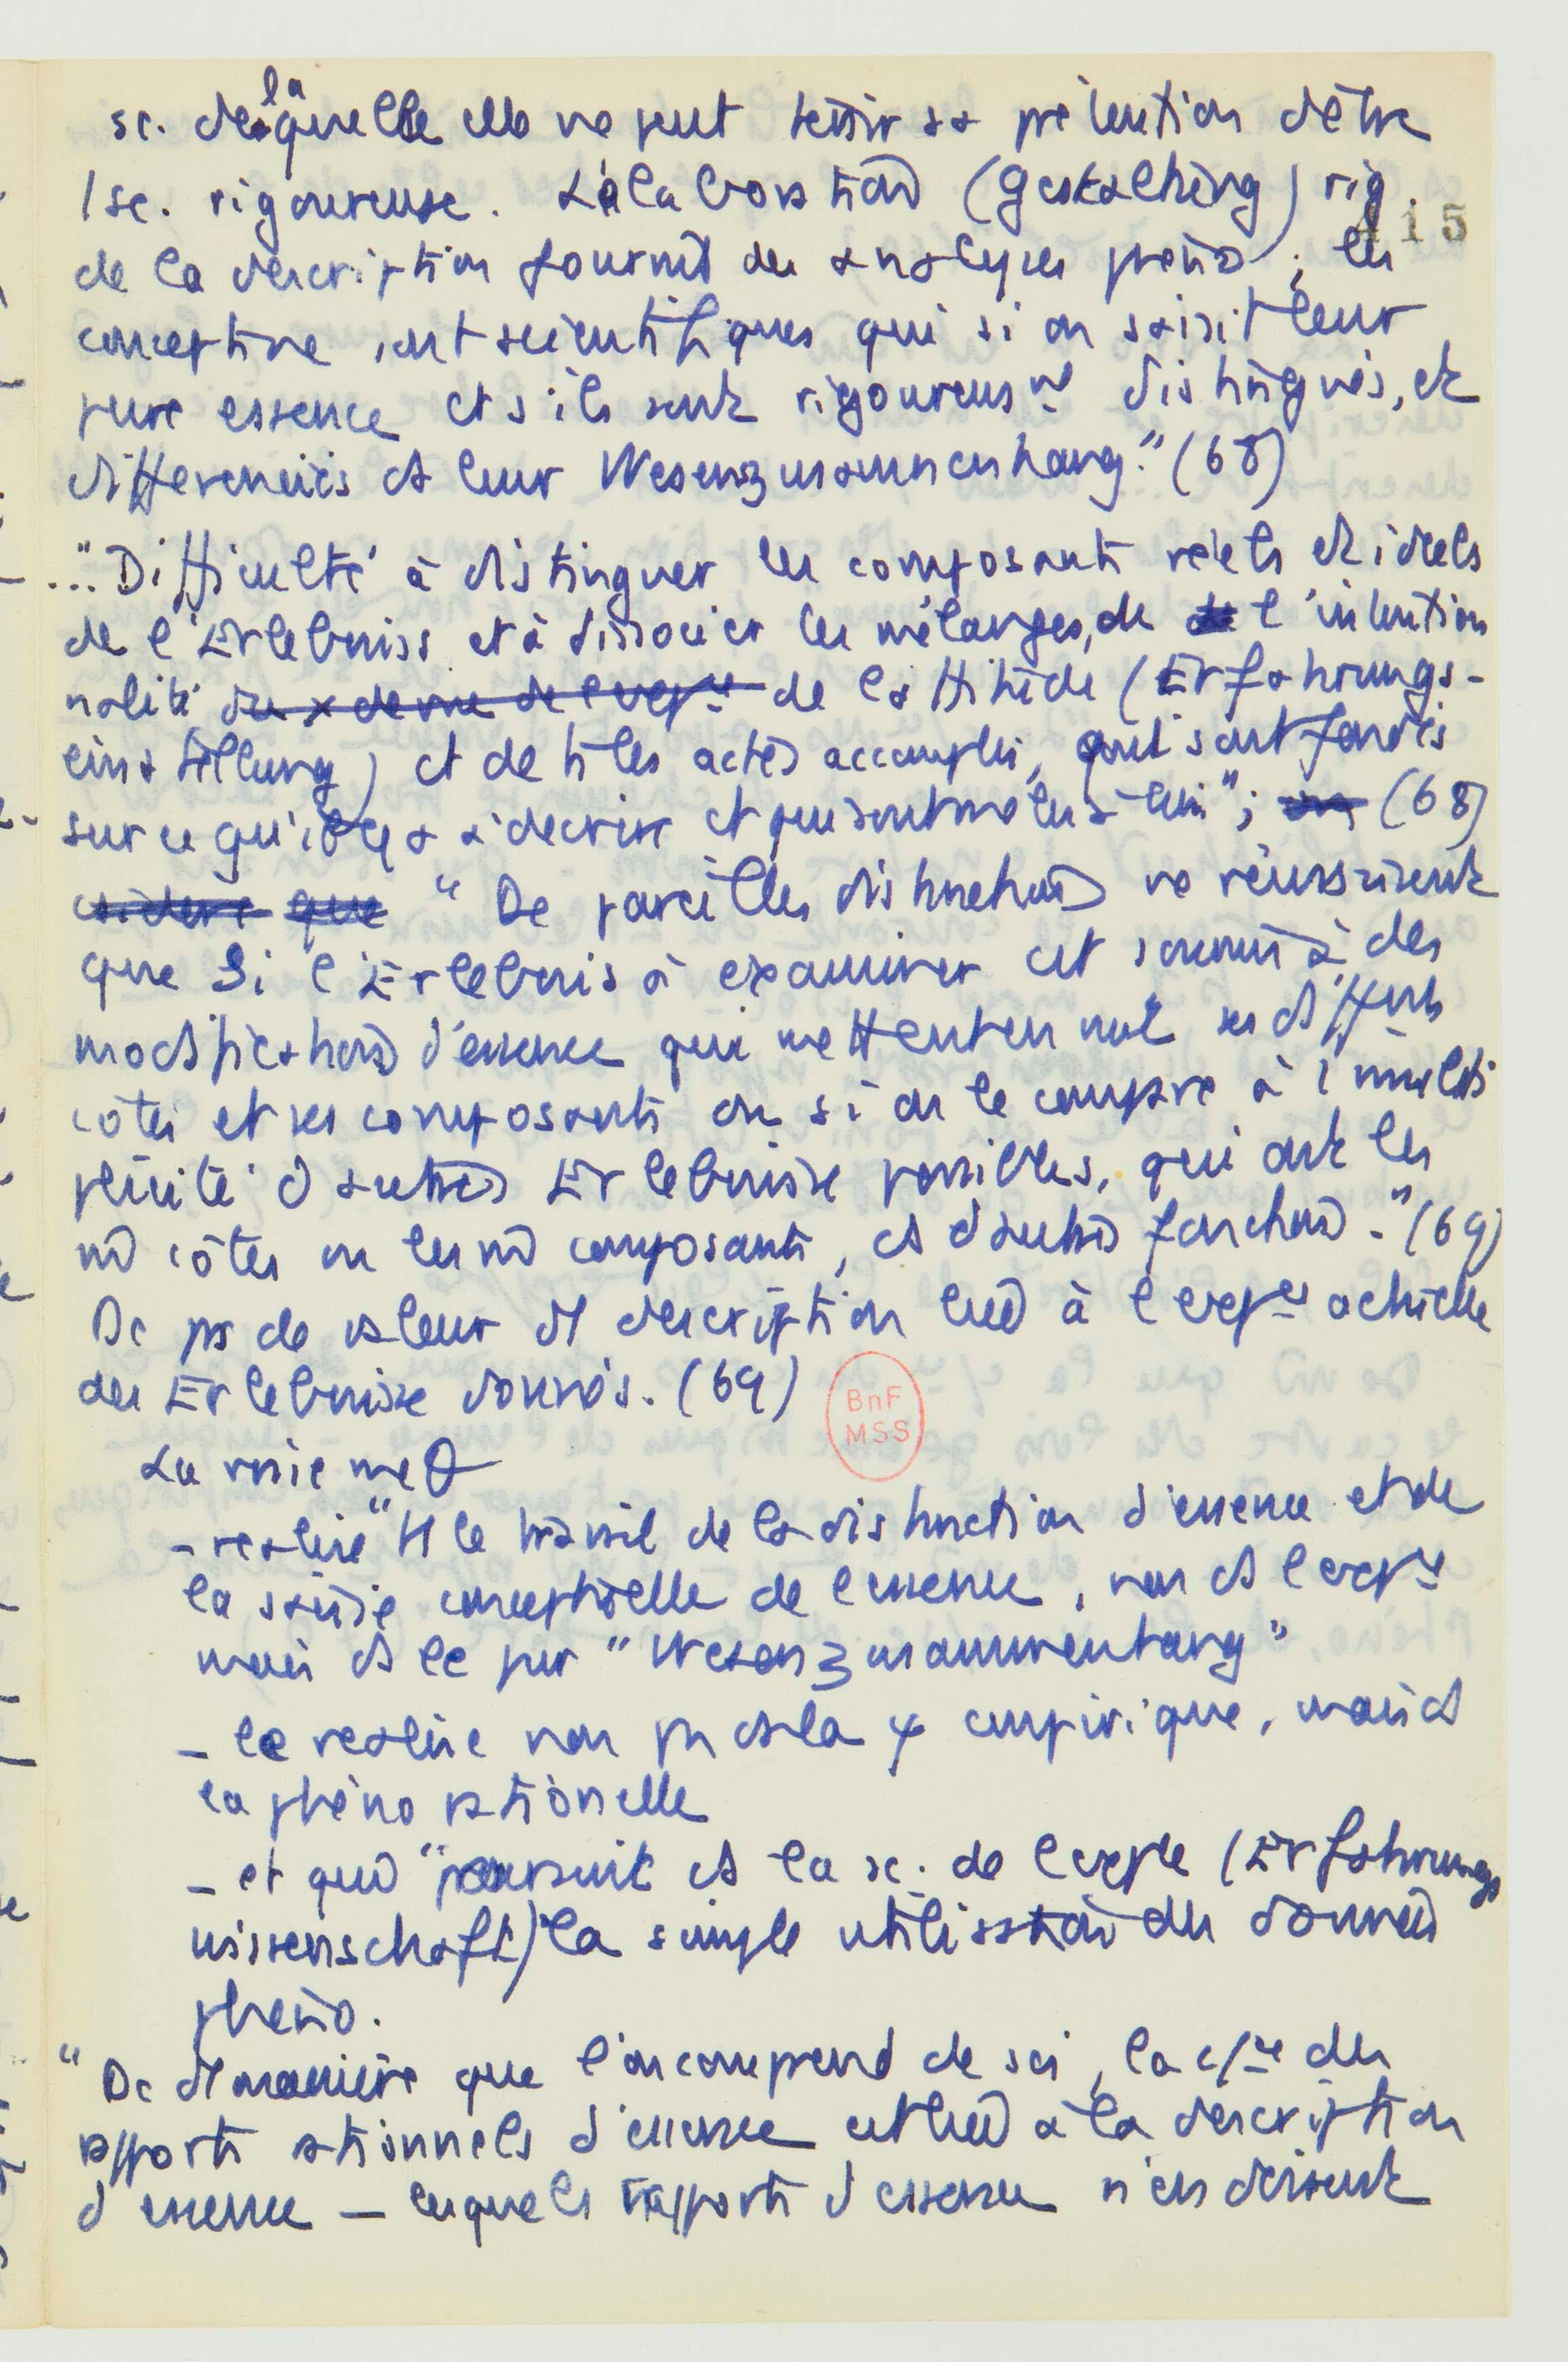 sc. de laquelle elle ne peut tenir sa prétention d'être
1 sc. rigoureuse. L'élaboration (Gestaltung) rig.
415
de la description fournit des analyses phéno ; les
concepts ne sont scientifiques que si on saisit leur
pure essence et s'ils sont rigoureusᵗ distingués, et
différenciés ds leur Wesenszusammenhang." (68)
..."Difficulté à distinguer les composants réels et idéels
de l'Erlebniss et à dissocier les mélanges, de l'intention
nalité de l'attitude (Erfahrungs-
einstellung) et de ts les actes accomplis, qui sont fondés
sur ce qu'il y a à décrire et qui sont mêlés à lui" ; (68)
"De pareilles distinctions ne réussissent
que si l'Erlebnis à examiner est soumis à des
modifications d'essence qui mettent en ses différents
côtés et ses composants ou si on le compare à 1 multi
plicité d'autres Erlebnisse possibles, qui ont les
m̂ côtés ou les m̂ composants, ds d'autres fonctions." (69)
Dc ps de valeur d'1 description liée à l'expᶜᵉ actuelle
des Erlebnisse donnés. (69)
BnF
MSS
La vraie méθ
- réalise "tt le travail de la distinction d'essence et de
la saisie conceptuelle de l'essence, non ds l'expᶜᵉ
mais ds le pur "Wesenszusammenhang"
- le réalise non ps ds la ψ empirique, mais ds
la phéno rationelle
- et qud "poursuit ds la sc. de l'expce (Erfahrungs
wissenschaft) la simple utilisation des données
phéno.
"De 1 manière que l'on comprend de soi, la cᶜᵉ des
rapports rationnels d'essence est liée à la description
d'essence - lesquels rapports d'essence n'en disent